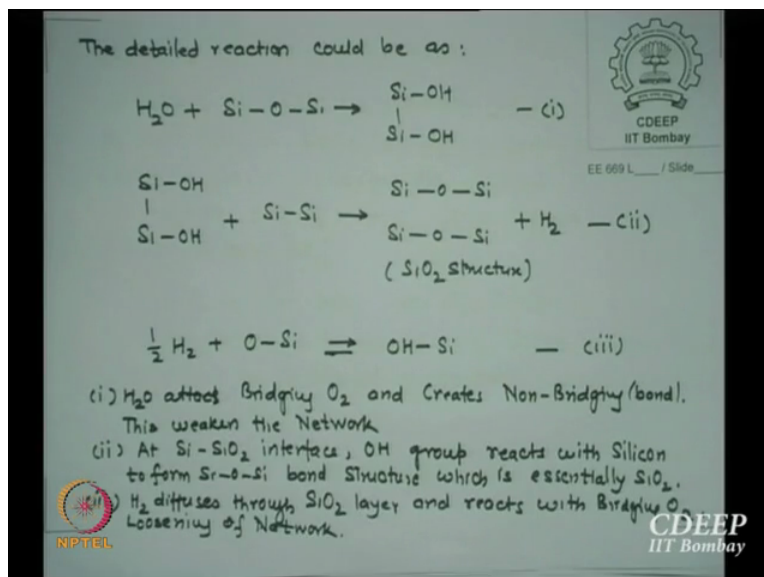 The detailed reaction could be as :
H2O + Si - O - Si → Si - OH | Si - OH - (i)
CDEEP
IIT Bombay
EE 669 L___ / Slide___
Si - OH | Si - OH + Si - Si → Si - O - Si Si - O - Si + H2 - (ii)
(SiO2 structure)
1/2 H2 + O - Si ⇌ OH - Si - (iii)
(i) H2O attacks Bridging O2 and Creates Non-Bridging (bond).
This weaken the Network
(ii) At Si - SiO2 interface, OH group reacts with Silicon
to form Si-O-Si bond structure which is essentially SiO2.
H2 diffuses through SiO2 layer and reacts with Birdging O2
Loosening of Network.
NPTEL
CDEEP
IIT Bombay